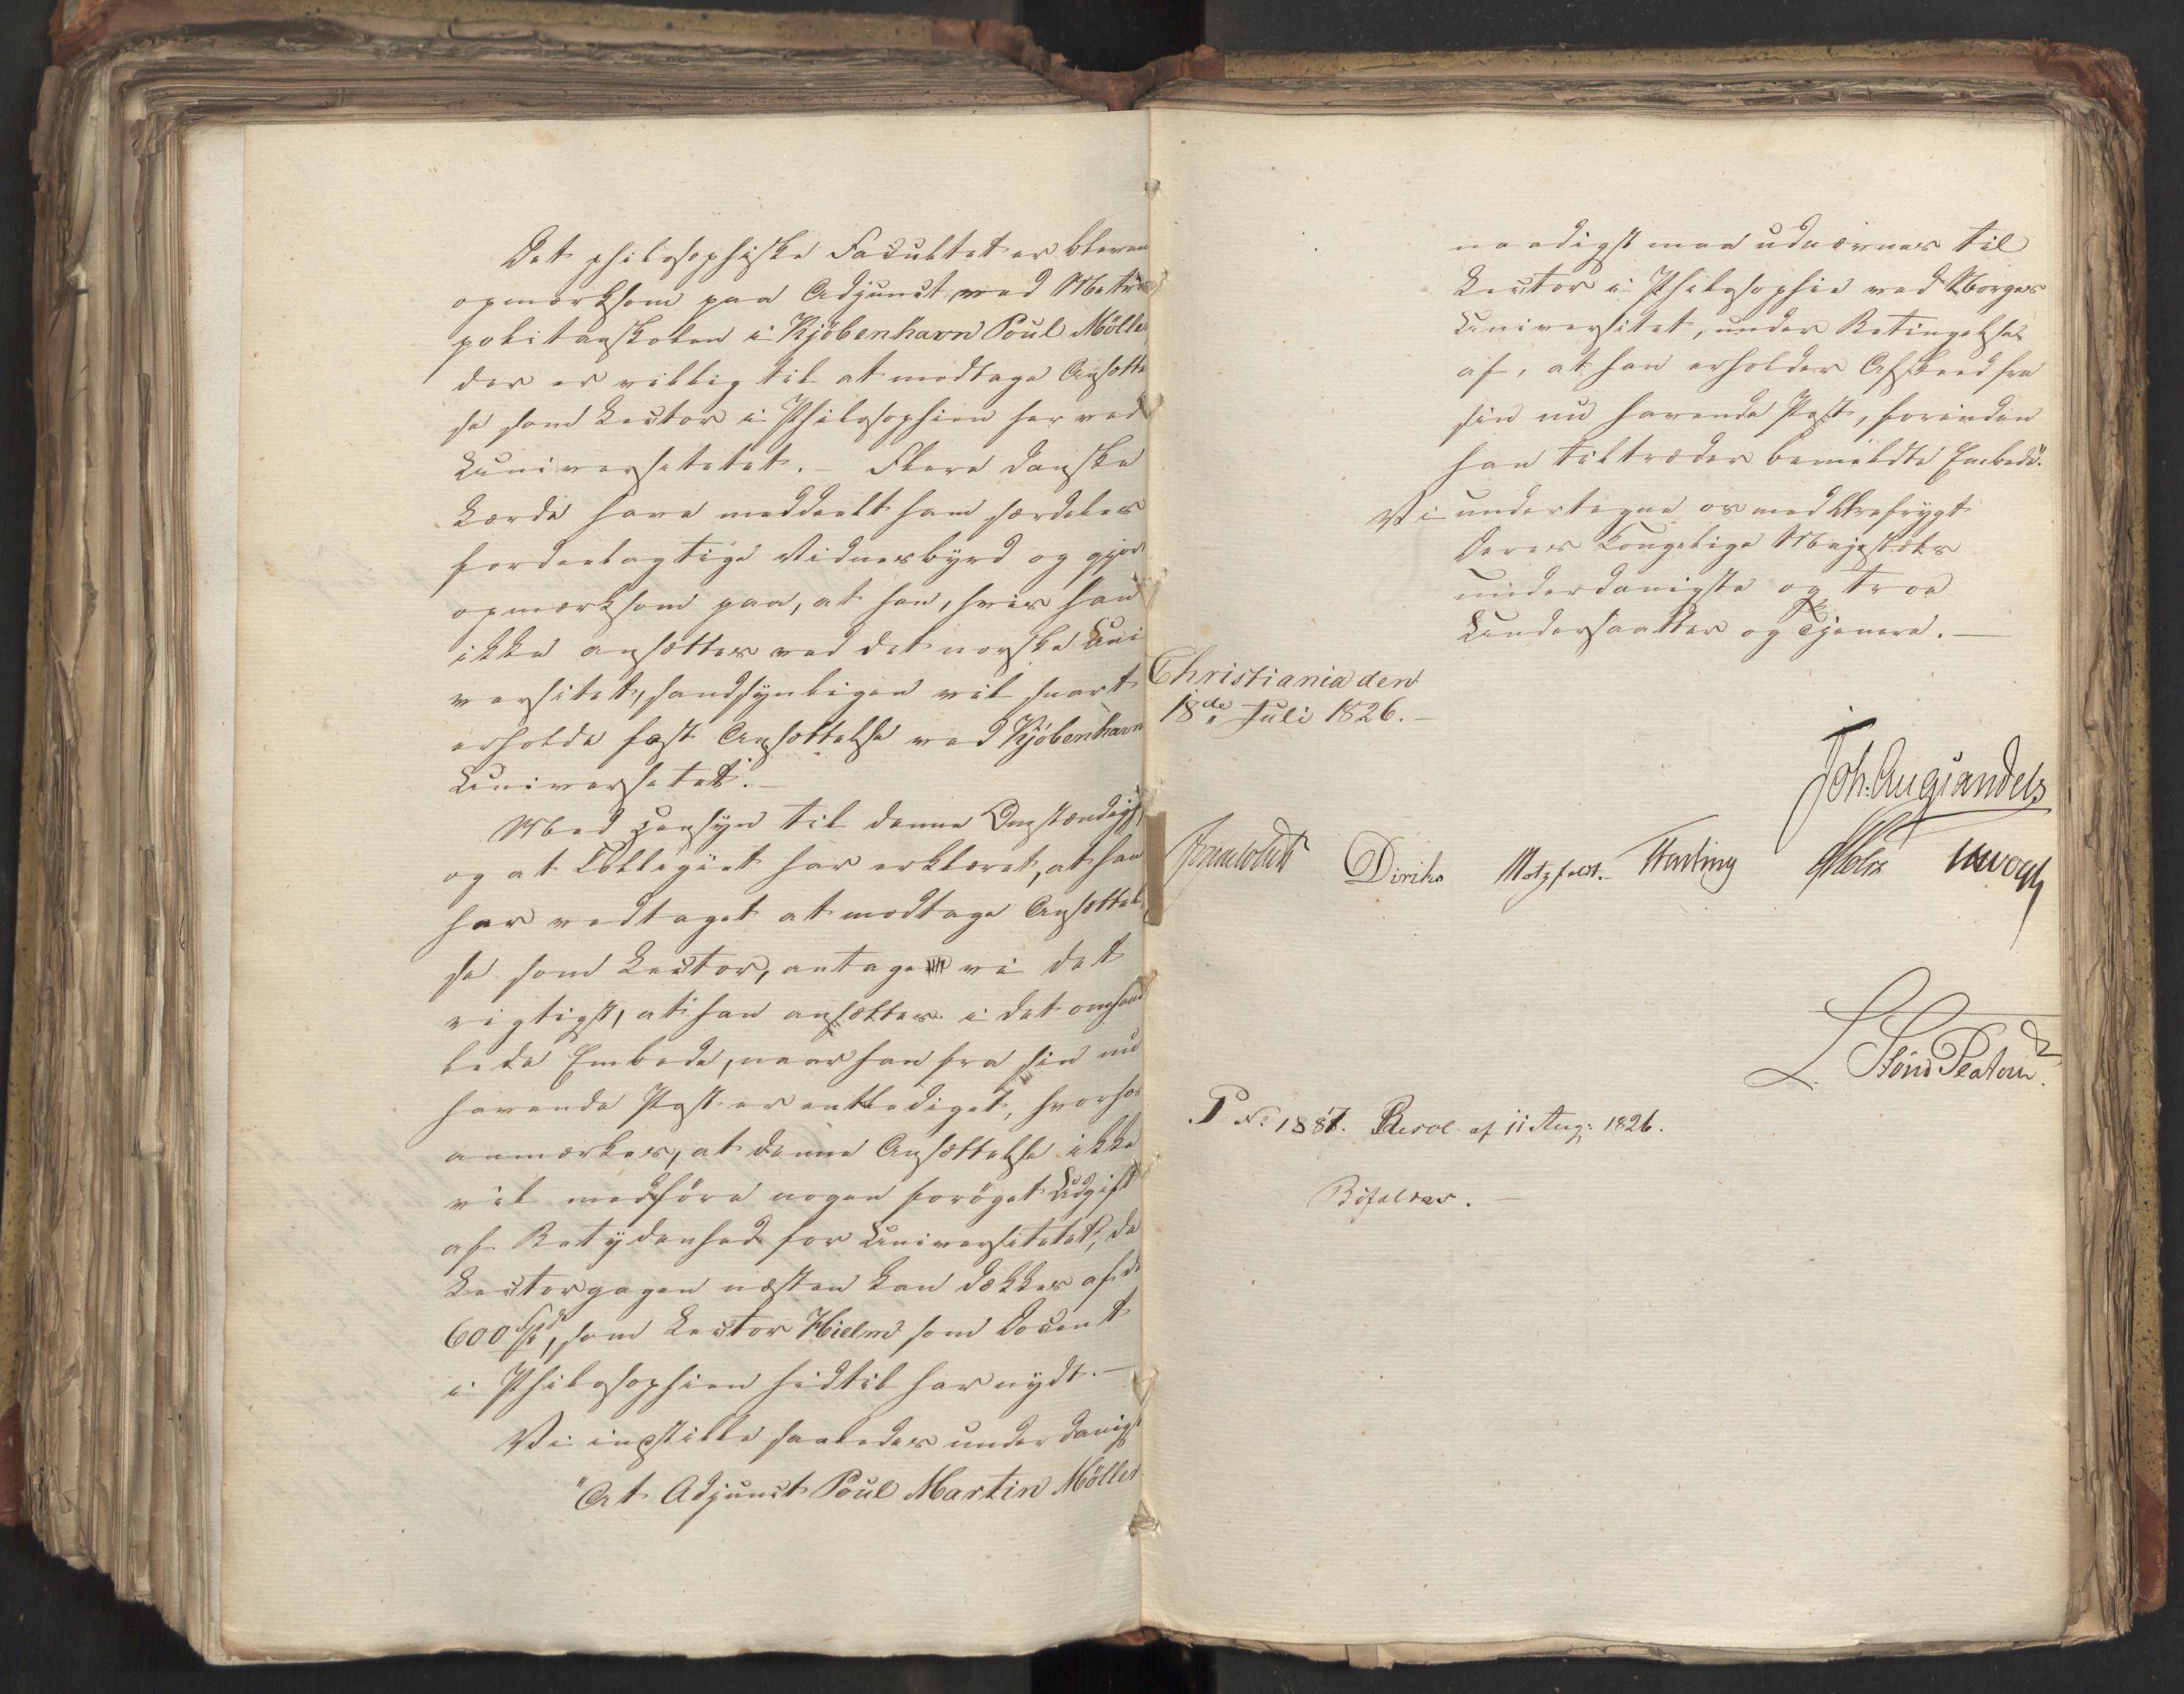 Det philosophiske Facultet er bleven
opmærksom paa Adjunct ved Metro
politanskolen i Kjöbenhavn Poul Möller,
der er villig til at modtage Ansættel
se som Lector i Philosophien her ved
Universitetet. – Flere danske
Lærde have meddeelt ham særdeles
fordeelagtige Vidnesbyrd og gjort
opmærksom paa, at han, hvis han
ikke ansættes ved det norske Uni
versitet, sandsynligen vil snart
erholde fast Ansættelse ved Kjöbenhavns
Universitet". –
Med Hensyn til denne Omstændighed
og at Collegiet har erklæret, at han
har vedtaget at modtage Ansættel
se som Lector, antage vi det
rigtigst, at han ansættes i det omhand
lede Embede, naar han fra sin nu
havende Post er entlediget, hvorhos
anmærkes, at denne Ansættelse ikke
vil medföre nogen foröget Udgift
af Betydenhed for Universitetet, da
Lectorgagen næsten kan dækkes af de
600 Spd, som Lector Hielm som Docent
i Philosophien hidtil har nydt. –
Vi indstille saaledes underdanigst
"At Adjunct Poul Martin Möller
naadigst maa udnævnes til
Lector i Philosophie ved Norges
Universitet, under Betingelse
af, at han erholder Afsked fra
sin nu havende Post, forinden
han tiltræder bemeldte Embede".
Vi undertegne os med Ærefrygt
Deres Kongelige Majestæts
underdanigste og troe
Undersaatter og Tjenere. –
Christiania den
18de Juli 1826. –
Joh. Aug. Sandels
Diriks Motzfeldt. Fasting Holst
L. Stöud Platou.
P No 1887. Resol. af 11 Aug: 1826.
Bifaldes. –